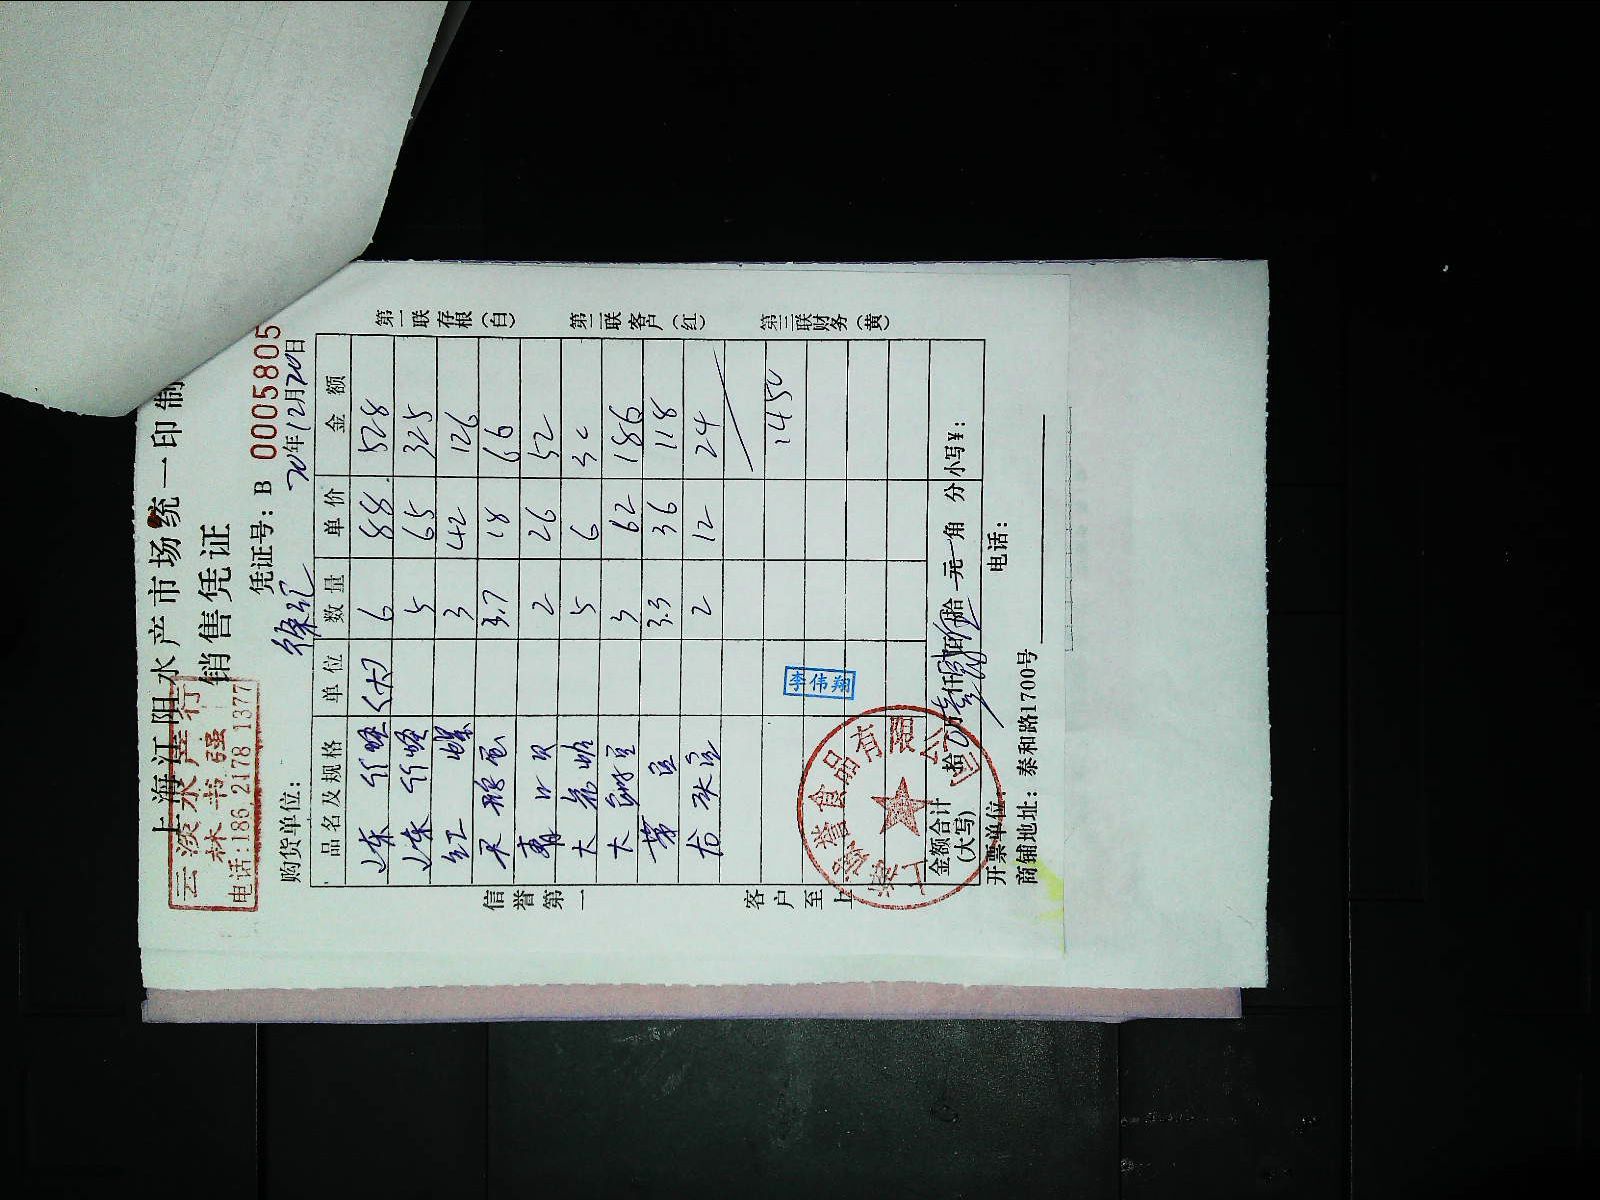 上海江阳水产市场统一印制
销售凭证
云淡水产行
林书强
电话:186 2178 1377
凭证号: B 0005805
购货单位: 徐汇
20年12月20日
品名及规格 单位 数量 单价 金额
6 88 528
5 65 325
红螺 3 42 126
3.7 18 66
2 26 52
5 6 30
3 62 186
3.3 36 118
2 12 24
1450
金额合计
(大写) 拾 万 仟 佰 拾 元 角 分 小写¥:
开票单位: 电话:
商铺地址: 泰和路1700号
信誉第一
客户至上
第一联存根(白)
第二联客户(红)
第三联财务(黄)
李伟翔
食品有限公司